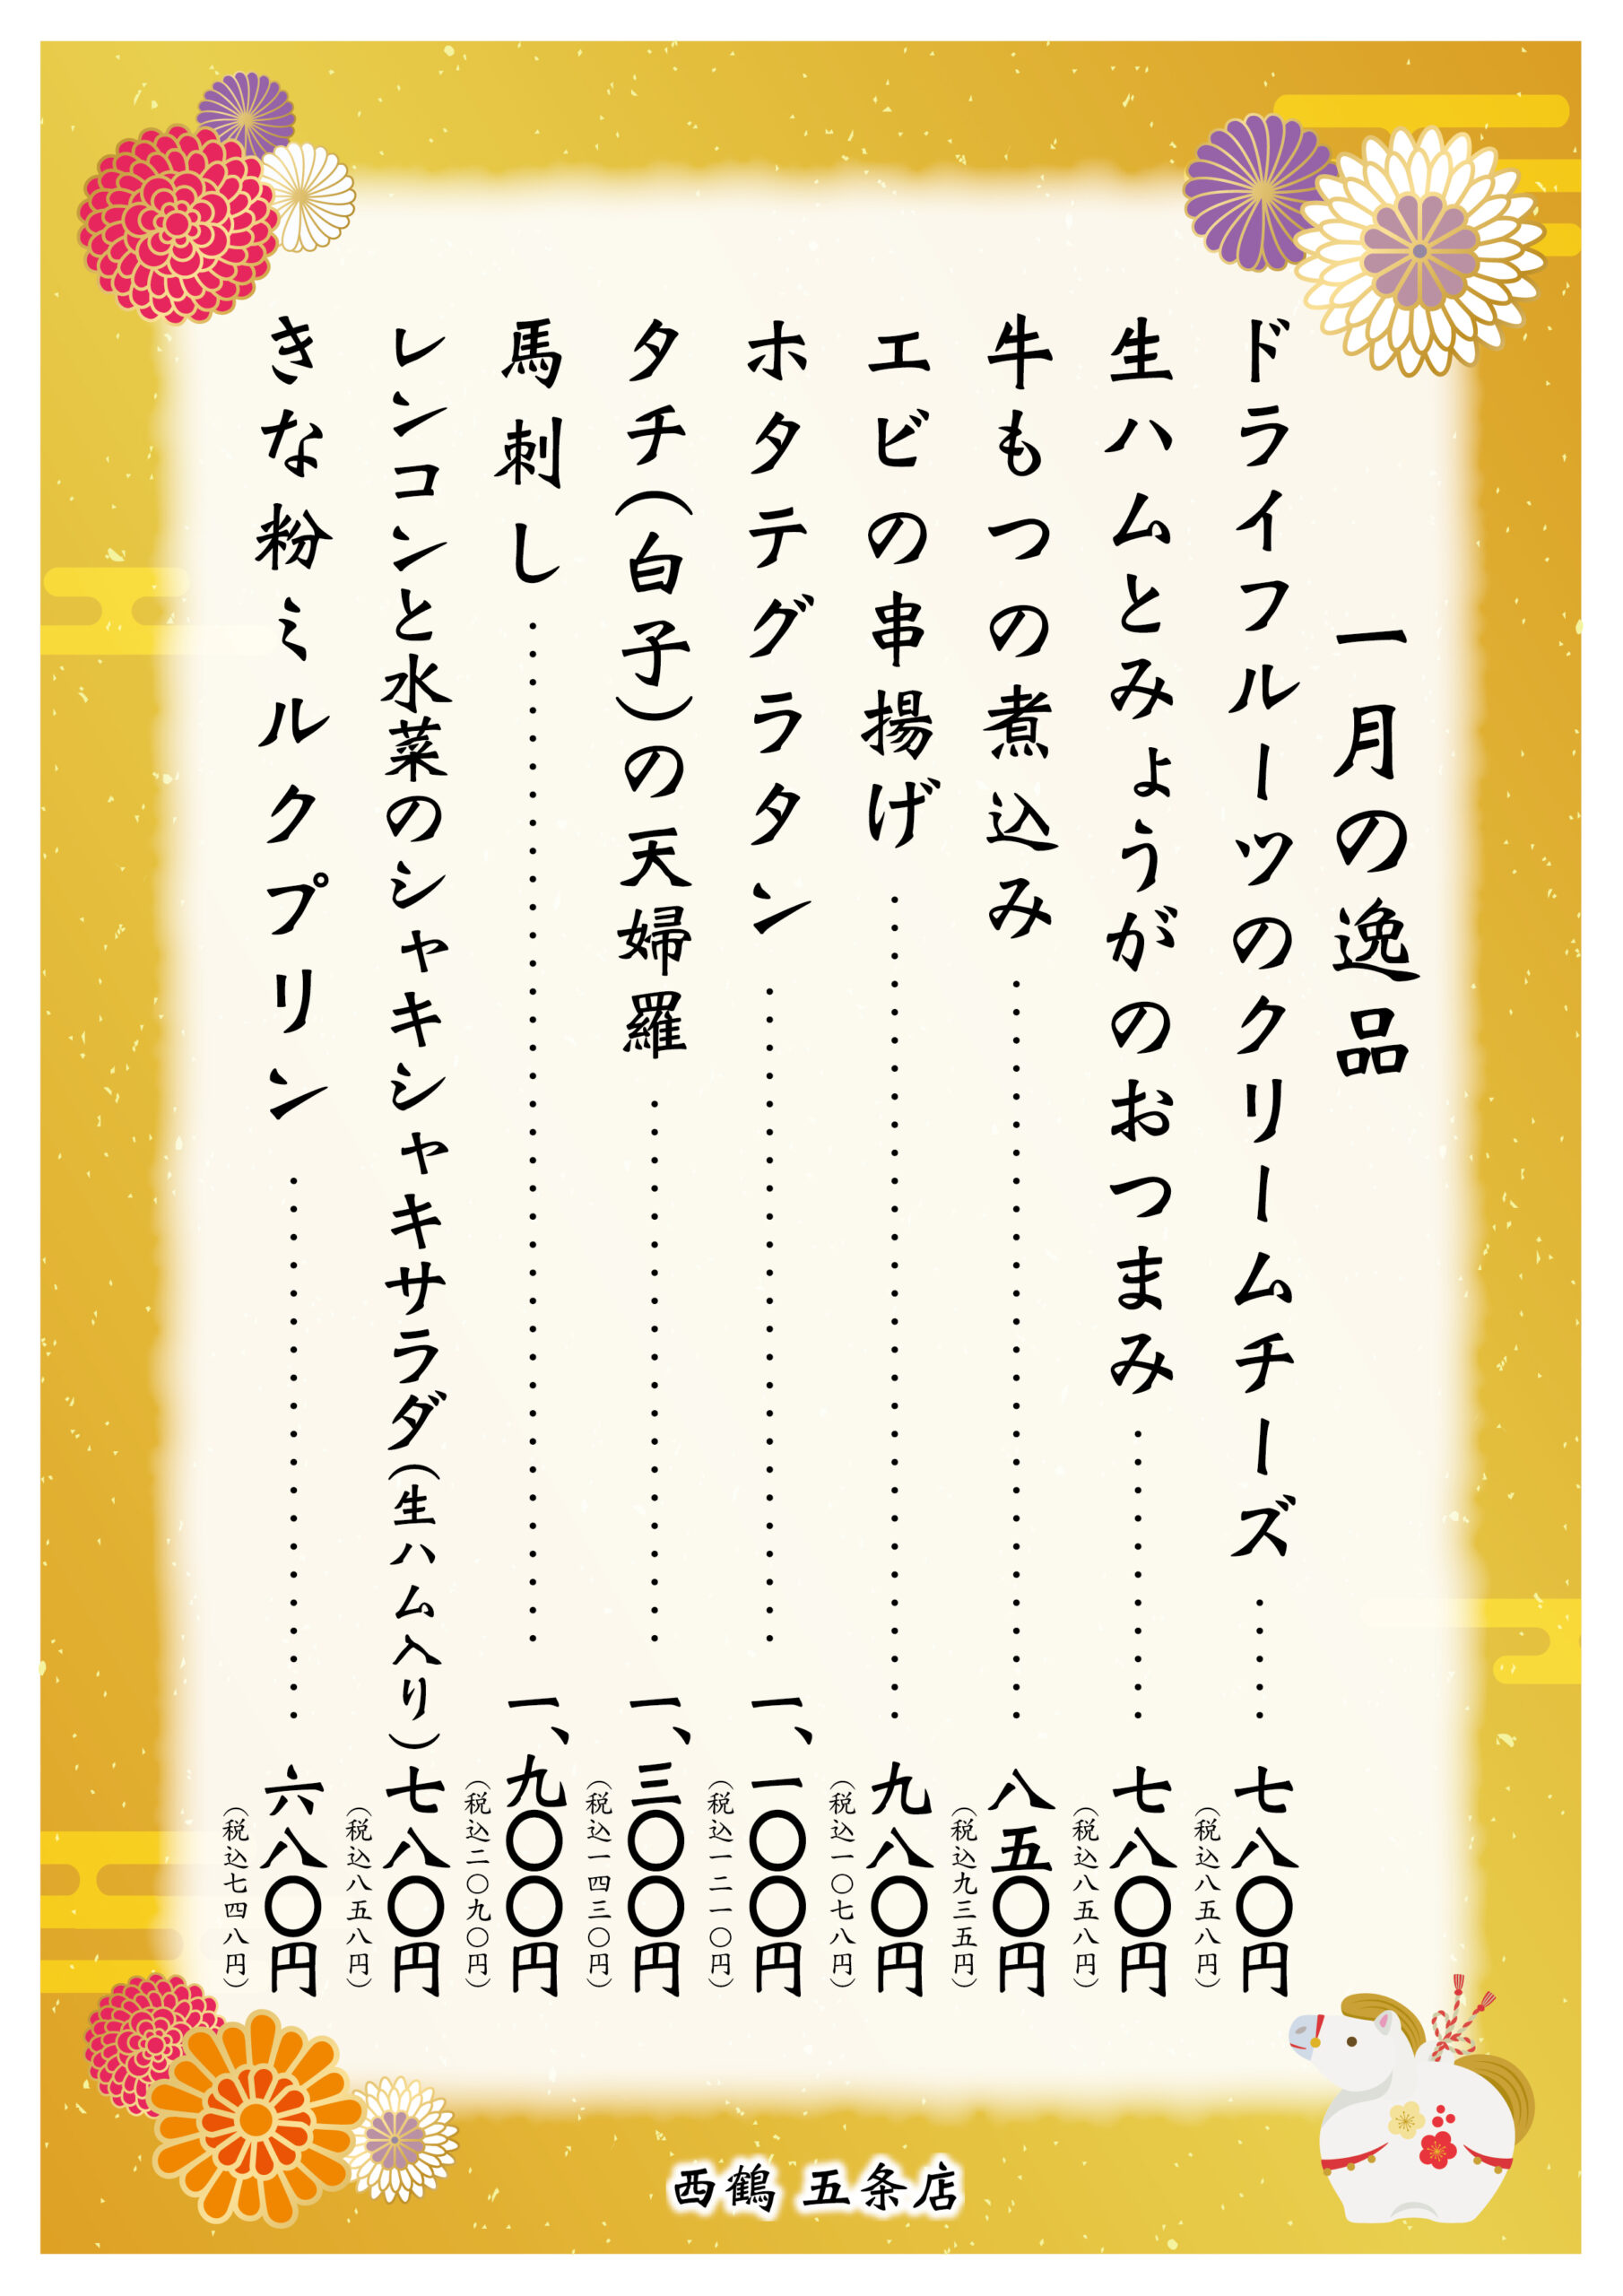 一月の逸品
ドライフルーツのクリームチーズ……七八〇円
（税込八五八円）
生ハムとみょうがのおつまみ…………七八〇円
（税込八五八円）
牛もつの煮込み…………………………八五〇円
（税込九三五円）
エビの串揚げ……………………………九八〇円
（税込一〇七八円）
ホタテグラタン………………………一、一〇〇円
（税込一二一〇円）
タチ（白子）の天婦羅…………………一、三〇〇円
（税込一四三〇円）
馬刺し…………………………………一、九〇〇円
（税込二〇九〇円）
レンコンと水菜のシャキシャキサラダ（生ハム入り）七八〇円
（税込八五八円）
きな粉ミルクプリン……………………六八〇円
（税込七四八円）
西鶴 五条店